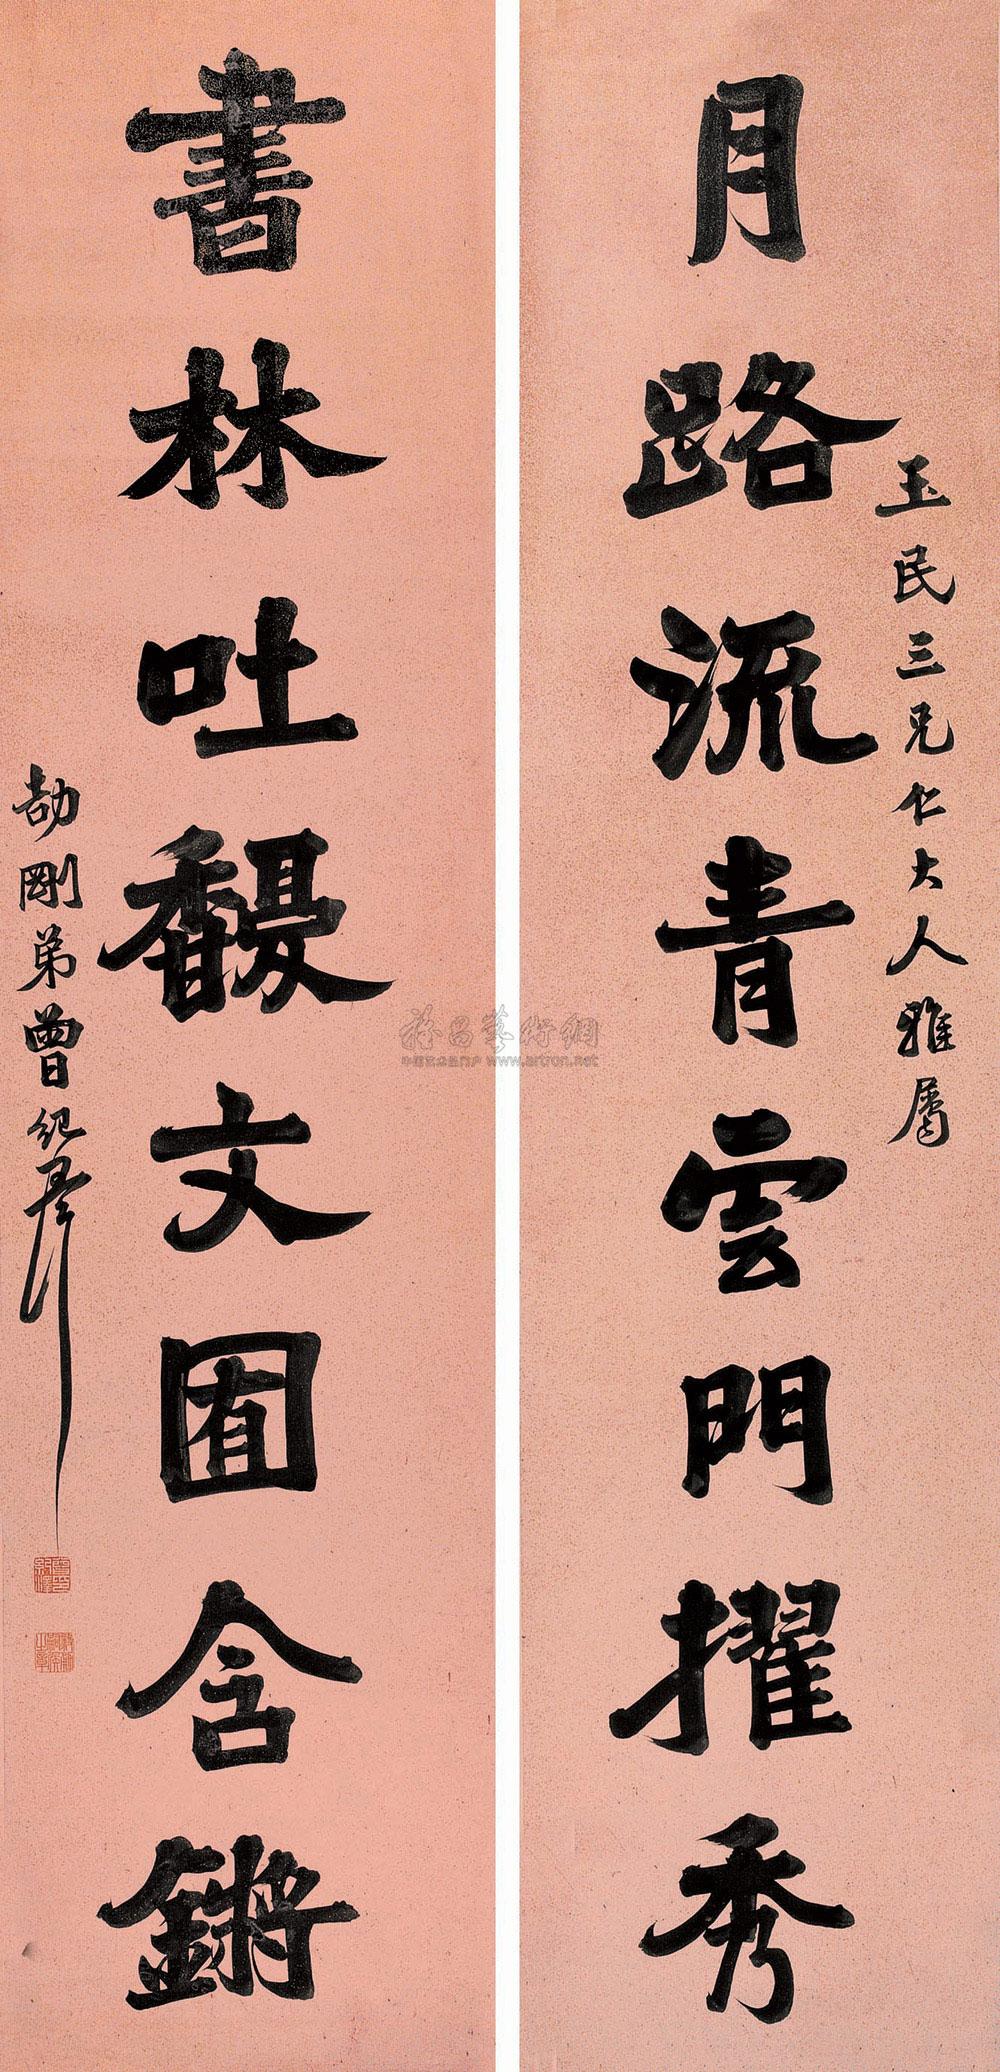 月路流青雲門擢秀
玉民三兄仁大人雅屬
書林吐馥文囿含鏘
劼剛弟曾紀澤
雅昌藝術網
中国艺术品门户 www.artron.net